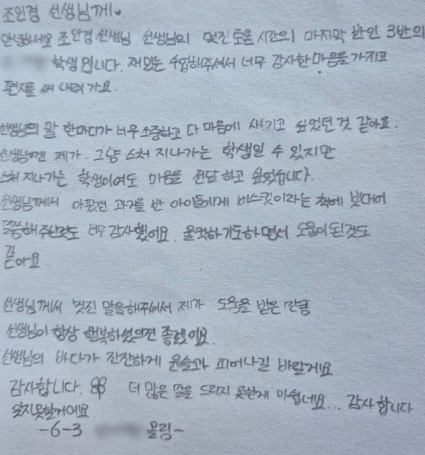 조인경 선생님께♥
안녕하세요 조인경 선생님 선생님의 멋진 도움 시간의 마지막 반인 3반의
학생 입니다. 재밌는 수업해주셔서 너무 감사한 마음을 가지고
편지를 써 내려 가요.
선생님의 말 한마디가 너무 소중하고 다 마음에 새기고 싶었던 것 같아요.
선생님껜 제가 그냥 스쳐 지나가는 학생일 수 있지만
스쳐 지나가는 학생이어도 마음을 전달 하고 싶었습니다.
선생님께서 아팠던 과거를 반 아이들에게 비스킷이라는 책에 빗대어
말해주신것도 너무 감사했어요. 울컥하기도하면서 도움이 된것도
같
아요
선생님께서 멋진 말을해주셔서 제가 도움을 받은 만큼
선생님이 항상 행복하셨으면 좋겠어요.
선생님의 바다가 잔잔하게 윤슬과 피어나길 바랄게요
감사합니다. 더 많은 말을 드리지 못한게 아쉽네요... 감사합니다
잊지못할거에요
-6-3 올림-